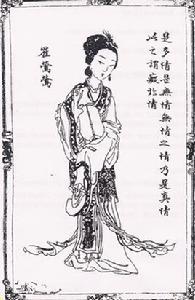 是多情是無情無情之情乃是真情
此之謂無非情
崔鶯鶯